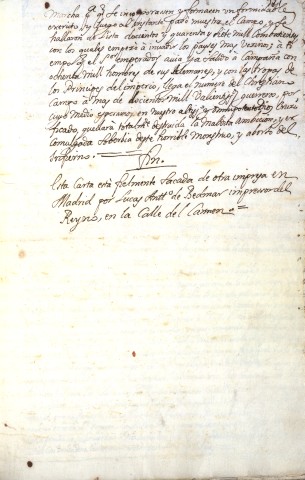 Marcha q̃ se incorporasen y formasen un formidable
exercito, y luego al instante paso muestra el Campo, y se
hallaron de lista docientos y quarenta y siete mill Combatientes,
con los quales empeso a invadir los payses mas vezinos; a
tiempo q̃ el Sr. emperador avia ya salido a Campaña con
ochenta mill hombres de sus alemanes, y con las tropas de
los Principes del imperio, llega el numero del Christiano
Campo a mas de docientos mill Valientes guerreros, por
cuyo medio esperamos en nuestro
ficado, quedara totalmte. destruida la malvada ambicion, y ex
comulgada soberbia deste horrible Monstruo, y aborto del
infierno.
Fin.
Esta Carta está fielmente sacada de otra impresa en
Madrid por Lucas Anttº. de Bedmar impresor del
Reyno, en la Calle del Carmen =